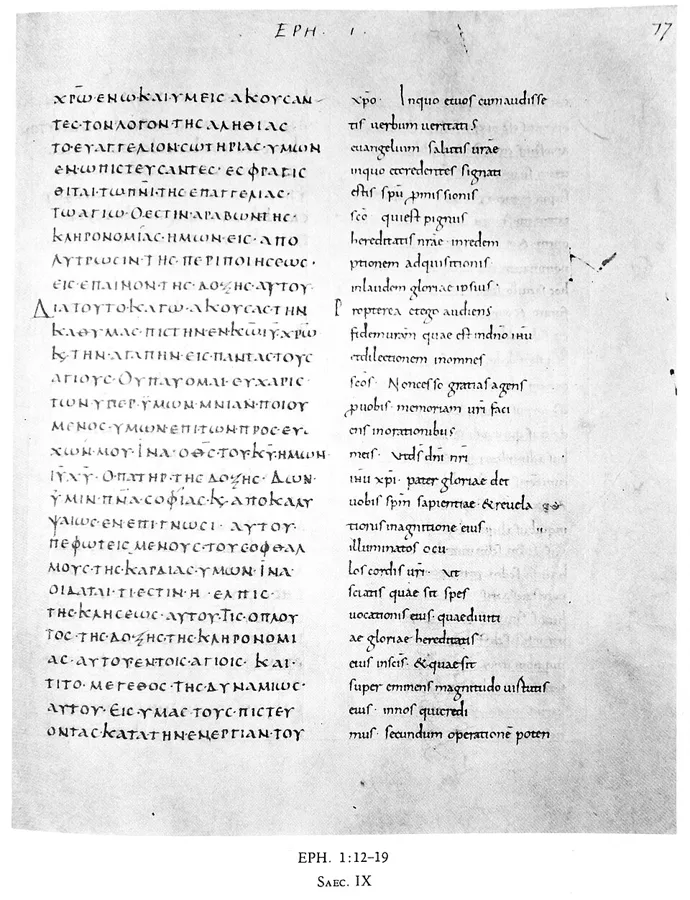 EPH. 1.
77
ΧΡ̅Ω·ΕΝΩ·ΚΑΙ·ΥΜΕΙC·ΑΚΟΥCΑΝ
ΤΕC·ΤΟΝ·ΛΟΓΟΝ·ΤΗC·ΑΛΗΘΙΑC
ΤΟ·ΕΥΑΓΓΕΛΙΟΝ·CΩΤΗΡΙΑC·ΥΜΩΝ
ΕΝ·Ω·ΠΙCΤΕΥCΑΝΤΕC·ΕCΦΡΑΓΙC
ΘΙΤΑΙ·ΤΩ·ΠΝ̅Ι·ΤΗC·ΕΠΑΓΓΕΛΙΑC·
ΤΩ·ΑΓΙΩ·Ο·ΕCΤΙΝ·ΑΡΑΒΩΝ·ΤΗC·
ΚΛΗΡΟΝΟΜΙΑC·ΗΜΩΝ·ΕΙC·ΑΠΟ
ΛΥΤΡΩCΙΝ·ΤΗC·ΠΕΡΙΠΟΙΗCΕΩC·
ΕΙC·ΕΠΑΙΝΟΝ·ΤΗC·ΔΟΞΗC·ΑΥΤΟΥ
ΔΙΑ·ΤΟΥΤΟ·ΚΑΓΩ·ΑΚΟΥCΑC·ΤΗΝ
ΚΑΘ·ΥΜΑC·ΠΙCΤΗΝ·ΕΝ·ΚΩ̅·ΙΥ̅·ΧΡΩ̅
Κ·ΤΗΝ·ΑΓΑΠΗΝ·ΕΙC·ΠΑΝΤΑC·ΤΟΥC
ΑΓΙΟΥC·ΟΥ·ΠΑΥΟΜΑΙ·ΕΥΧΑΡΙC·
ΤΩΝ·ΥΠΕΡ·ΥΜΩΝ·ΜΝΙΑΝ·ΠΟΙΟΥ
ΜΕΝΟC·ΥΜΩΝ·ΕΠΙ·ΤΩΝ·ΠΡΟC·ΕΥ
ΧΩΝ·ΜΟΥ·ΙΝΑ·ΟΘ̅C·ΤΟΥ·ΚΥ̅·ΗΜΩΝ·
ΙΥ̅·ΧΥ̅·Ο·ΠΑΤΗΡ·ΤΗC·ΔΟΞΗC·ΔΩΝ·
ΥΜΙΝ·ΠΝ̅Α·CΟΦΙΑC·Κ·ΑΠΟΚΑΛΥ
ΨΑΙΩC·ΕΝ·ΕΠΙΓΝΩCΙ·ΑΥΤΟΥ·
ΠΕΦΩΤΕΙCΜΕΝΟΥC·ΤΟΥC·ΟΦΘΑΛ
ΜΟΥC·ΤΗC·ΚΑΡΔΙΑC·ΥΜΩΝ·ΙΝΑ·
ΟΙΔΑΤΑΙ·ΤΙ·ΕCΤΙΝ·Η·ΕΛΠΙC·
ΤΗC·ΚΛΗCΕΩC·ΑΥΤΟΥ·ΤΙC·Ο·ΠΛΟΥ
ΤΟC·ΤΗC·ΔΟΞΗC·ΤΗC·ΚΛΗΡΟΝΟΜΙ
ΑC·ΑΥΤΟΥ·ΕΝ·ΤΟΙC·ΑΓΙΟΙC·ΚΑΙ·
ΤΙ·ΤΟ·ΜΕΓΕΘΟC·ΤΗC·ΔΥΝΑΜΙΩC·
ΑΥΤΟΥ·ΕΙC·ΥΜΑC·ΤΟΥC·ΠΙCΤΕΥ
ΟΝΤΑC·ΚΑΤΑ·ΤΗΝ·ΕΝΕΡΓΙΑΝ·ΤΟΥ
xp̅o· Inquo etuos cumaudisse
tis uerbum ueritatis
euangelium salutis u̅rae
inquo etcredentes signati
estis sp̅u p̅missionis
sc̅o quiest pignus
hereditatis n̅rae· inredem
ptionem adquisitionis·
inlaudem gloriae ipsius·
Propterea etego audiens
fidem ur̅am quae est indn̅o ih̅u
etdilectionem inomnes
sc̅os· Noncesso gratias agens
puobis memoriam ur̅i faci
ens inorationibus
meis· Utd̅s dn̅i nr̅i
ih̅u xp̅i· pater gloriae det
uobis sp̅m sapientiae & reuela
tionis inagnitione eius
illuminatos ocu
los cordis ur̅i· Ut
sciatis quae sit spes
uocationis eius· quae diuiti
ae gloriae hereditatis
eius insc̅is· & quae sit
super eminens magnitudo uirtutis
eius· innos qui credi
mus· secundum operatione̅ poten
EPH. 1:12-19
SAEC. IX